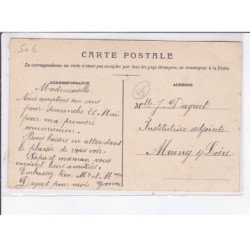 5u6
CARTE POSTALE
La correspondance au recto n'étant pas acceptée par tous les pays étrangers, se renseigner à la Poste
CORRESPONDANCE
ADRESSE
Mademoiselle
Nous comptons sur vous
pour dimanche 26 Mai
pour ma première
communion.
Bons baisers en attendant
le plaisir de vous voir.
Papa et maman vous
envoient leurs amitiés.
Embrassez bien Mr et Mme
Daguet pour moi Yvonne
Mlle J. Daguet
Institutrice adjointe
Meung s/ Loire